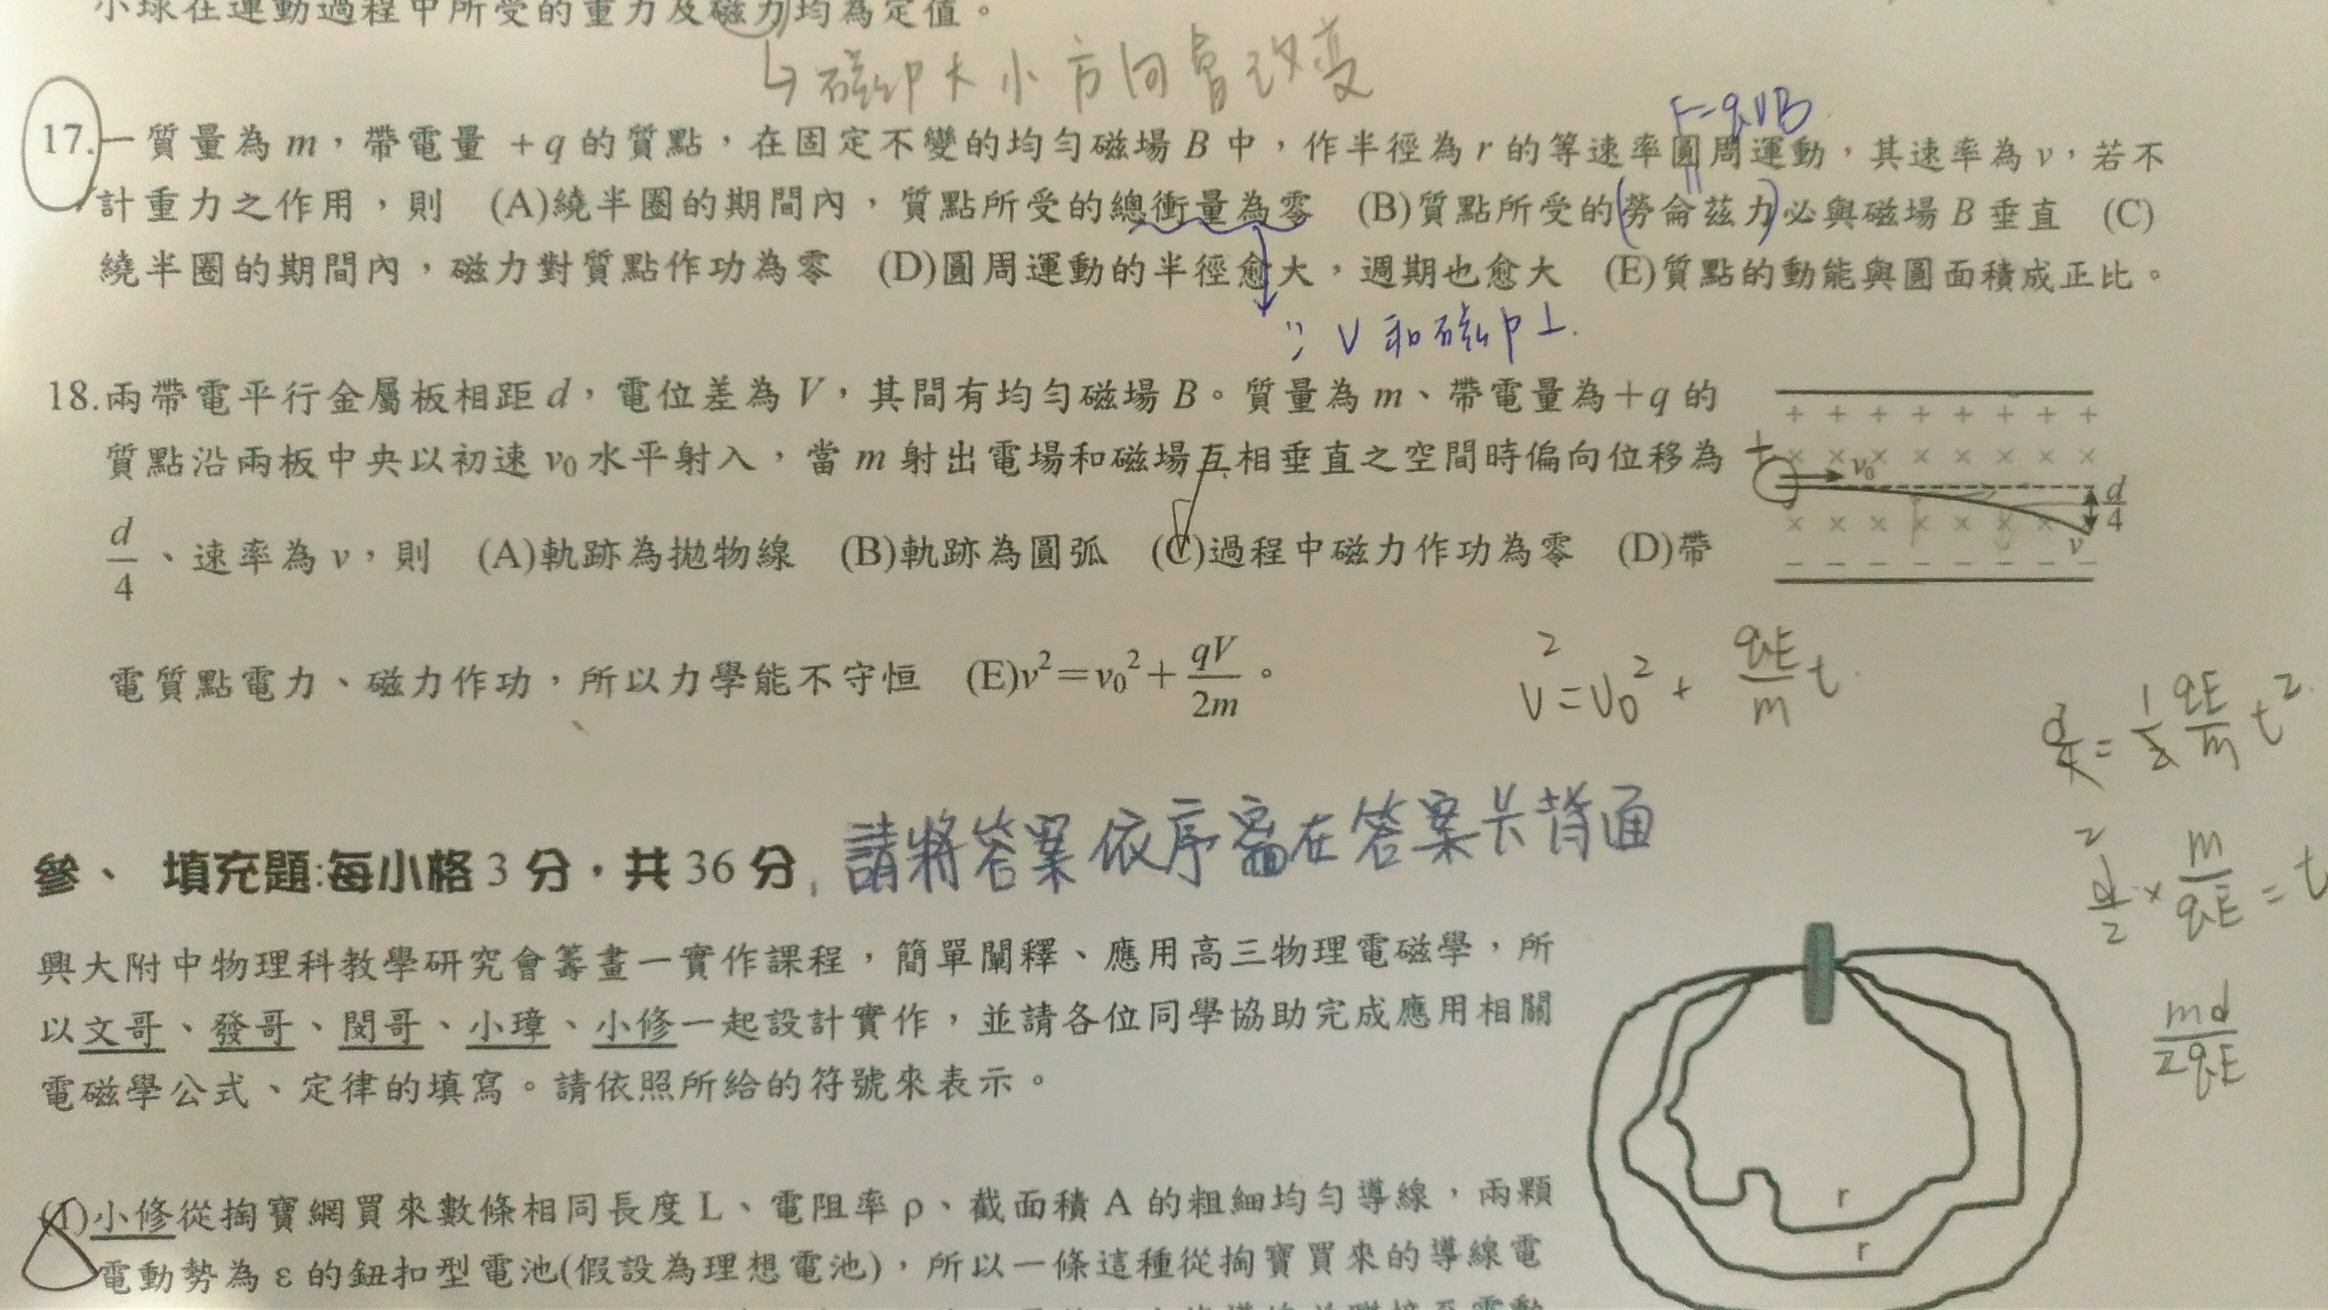 小球在運動過程中所受的重力及磁力均為定值。
↳磁力大小方向會改變
F=qVB
17.一質量為 m，帶電量 +q 的質點，在固定不變的均勻磁場 B 中，作半徑為 r 的等速率圓周運動，其速率為 v，若不
計重力之作用，則 (A)繞半圈的期間內，質點所受的總衝量為零 (B)質點所受的勞侖茲力必與磁場 B 垂直 (C)
繞半圈的期間內，磁力對質點作功為零 (D)圓周運動的半徑愈大，週期也愈大 (E)質點的動能與圓面積成正比。
∵ V 和磁力⊥.
18.兩帶電平行金屬板相距 d，電位差為 V，其間有均勻磁場 B。質量為 m、帶電量為+q 的
質點沿兩板中央以初速 v₀ 水平射入，當 m 射出電場和磁場互相垂直之空間時偏向位移為
d/4、速率為 v，則 (A)軌跡為拋物線 (B)軌跡為圓弧 (C)過程中磁力作功為零 (D)帶
電質點電力、磁力作功，所以力學能不守恒 (E)v²=v₀²+qV/2m。
+ + + + + + + +
× × × × × × × ×
+
v₀
d/4
× × × × × × ×
v
− − − − − − − −
V²=V₀²+qE/m t
d/4=1/2 qE/m t²
d/2×m/qE=t²
md/2qE
參、 填充題:每小格 3 分，共 36 分, 請將答案依序寫在答案卡背面
興大附中物理科教學研究會籌畫一實作課程，簡單闡釋、應用高三物理電磁學，所
以文哥、發哥、閔哥、小璋、小修一起設計實作，並請各位同學協助完成應用相關
電磁學公式、定律的填寫。請依照所給的符號來表示。
(1)小修從掏寶網買來數條相同長度 L、電阻率 ρ、截面積 A 的粗細均勻導線，兩顆
電動勢為 ε 的鈕扣型電池(假設為理想電池)，所以一條這種從掏寶買來的導線電
r
r